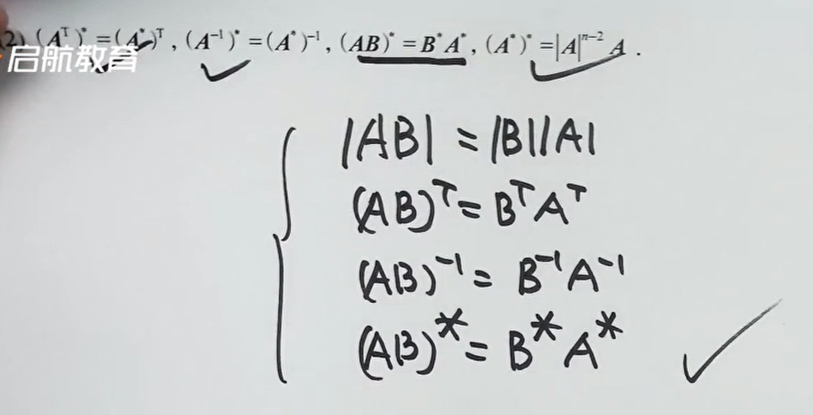 2) (Aᵀ)* = (A*)ᵀ, (A⁻¹)* = (A*)⁻¹, (AB)* = B*A*, (A*)* = |A|ⁿ⁻² A .
启航教育
|AB| = |B||A|
(AB)ᵀ = BᵀAᵀ
(AB)⁻¹ = B⁻¹A⁻¹
(AB)* = B*A*